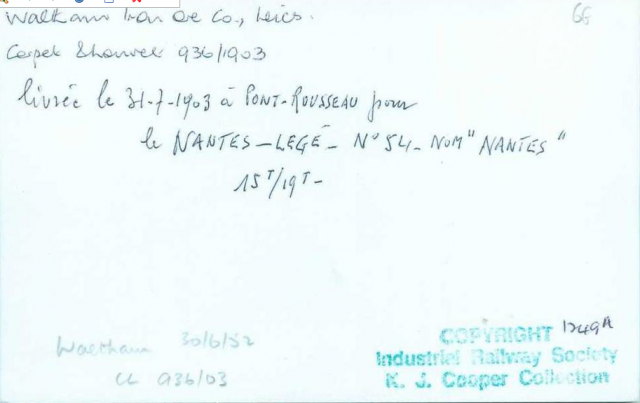 Waltham Iron Ore Co., Leics.
66
Corpet & Louvet 936/1903
livrée le 31-7-1903 à PONT-ROUSSEAU pour
le NANTES-LEGÉ - N° 54 - NOM "NANTES"
15T/19T-
Waltham 30/6/52
CL 936/03
COPYRIGHT
Industrial Railway Society
K. J. Cooper Collection